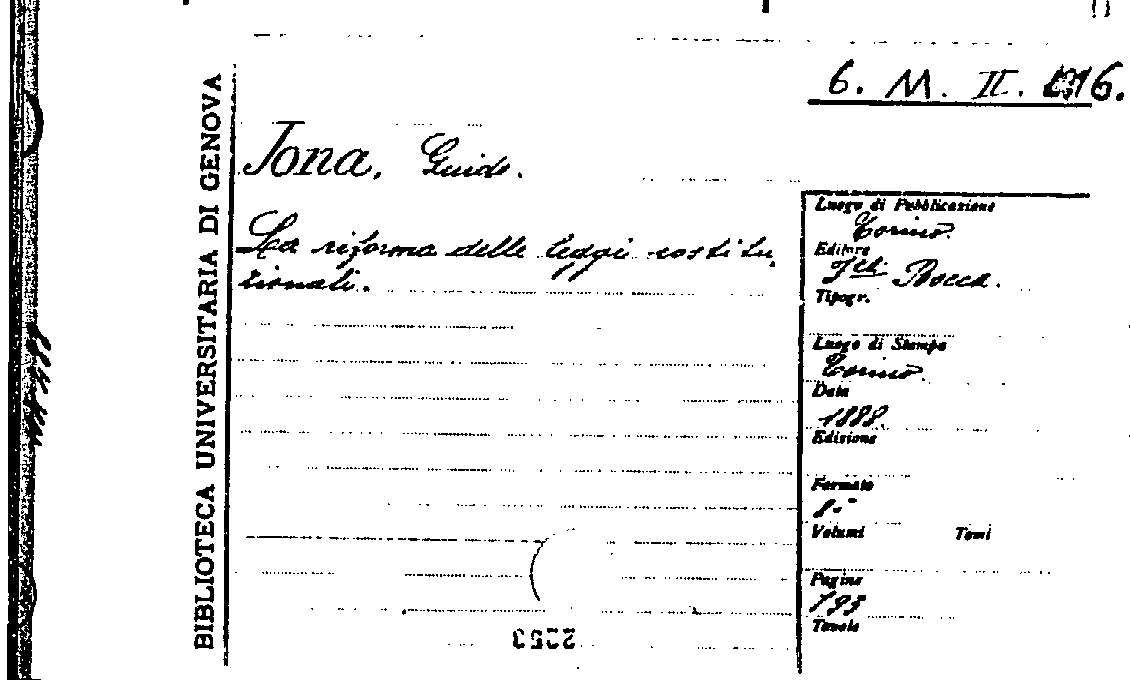 6. M. II. 
BIBLIOTECA UNIVERSITARIA DI GENOVA
Jona, Guido.
La riforma delle leggi costitu
zionali.
Luogo di Pubblicazione
Torino.
Editore
Flli Bocca.
Tipogr.
Luogo di Stampa
Torino.
Data
1888.
Edizione
Formato
8.°
Volumi Tomi
Pagine
193
Tavole